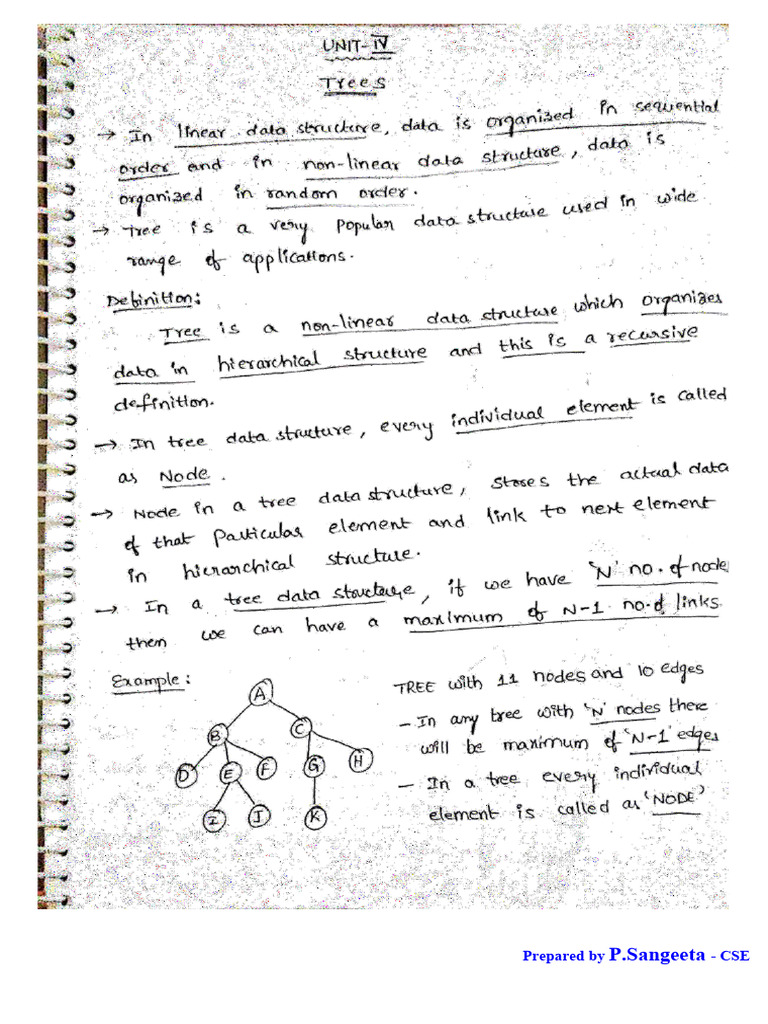 UNIT-IV
Trees
→ In linear data structure, data is organized in sequential
order and in non-linear data structure, data is
organized in random order.
→ Tree is a very popular data structure used in wide
range of applications.
Definition:
Tree is a non-linear data structure which organizes
data in hierarchical structure and this is a recursive
definition.
→ In tree data structure, every individual element is called
as Node.
→ Node in a tree data structure, stores the actual data
of that particular element and link to next element
in hierarchical structure.
→ In a tree data structure, if we have 'N' no. of node
then we can have a maximum of N-1 no.of links
Example:
A
B C
D E F G H
I J K
TREE with 11 nodes and 10 edges
- In any tree with 'N' nodes there
will be maximum of 'N-1' edges
- In a tree every individual
element is called as 'NODE'
Prepared by P.Sangeeta - CSE